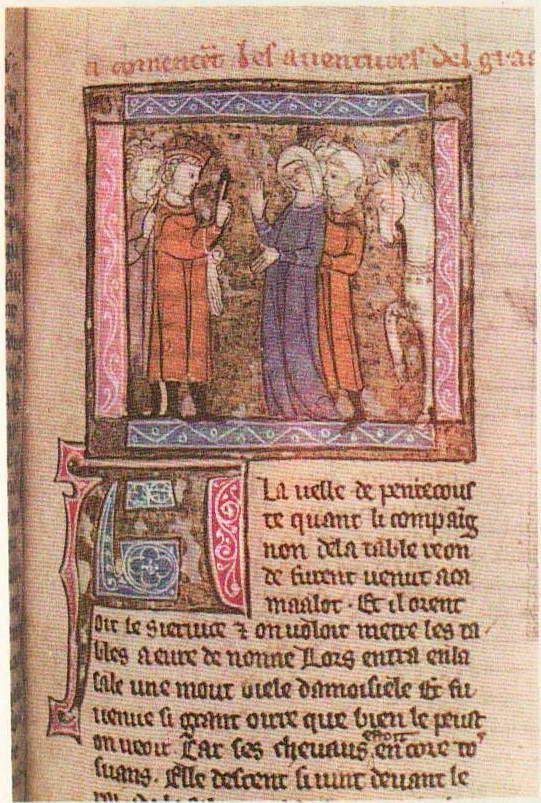 a comencēt les auentures del graa
A La uelle de pentecous
te quant li compaig
non de la table reon
de furent uenut a ca
maalot . Et il orent
oit le seruice ⁊ on uoloit metre les ta
bles a eure de nonne Lors entra en la
sale une mout biele damoisiele Et fu
uenue si grant oirre que bien le peust
on ueoir Car ses cheuaus estoit encore to'
suans . Elle descent si uint deuant le